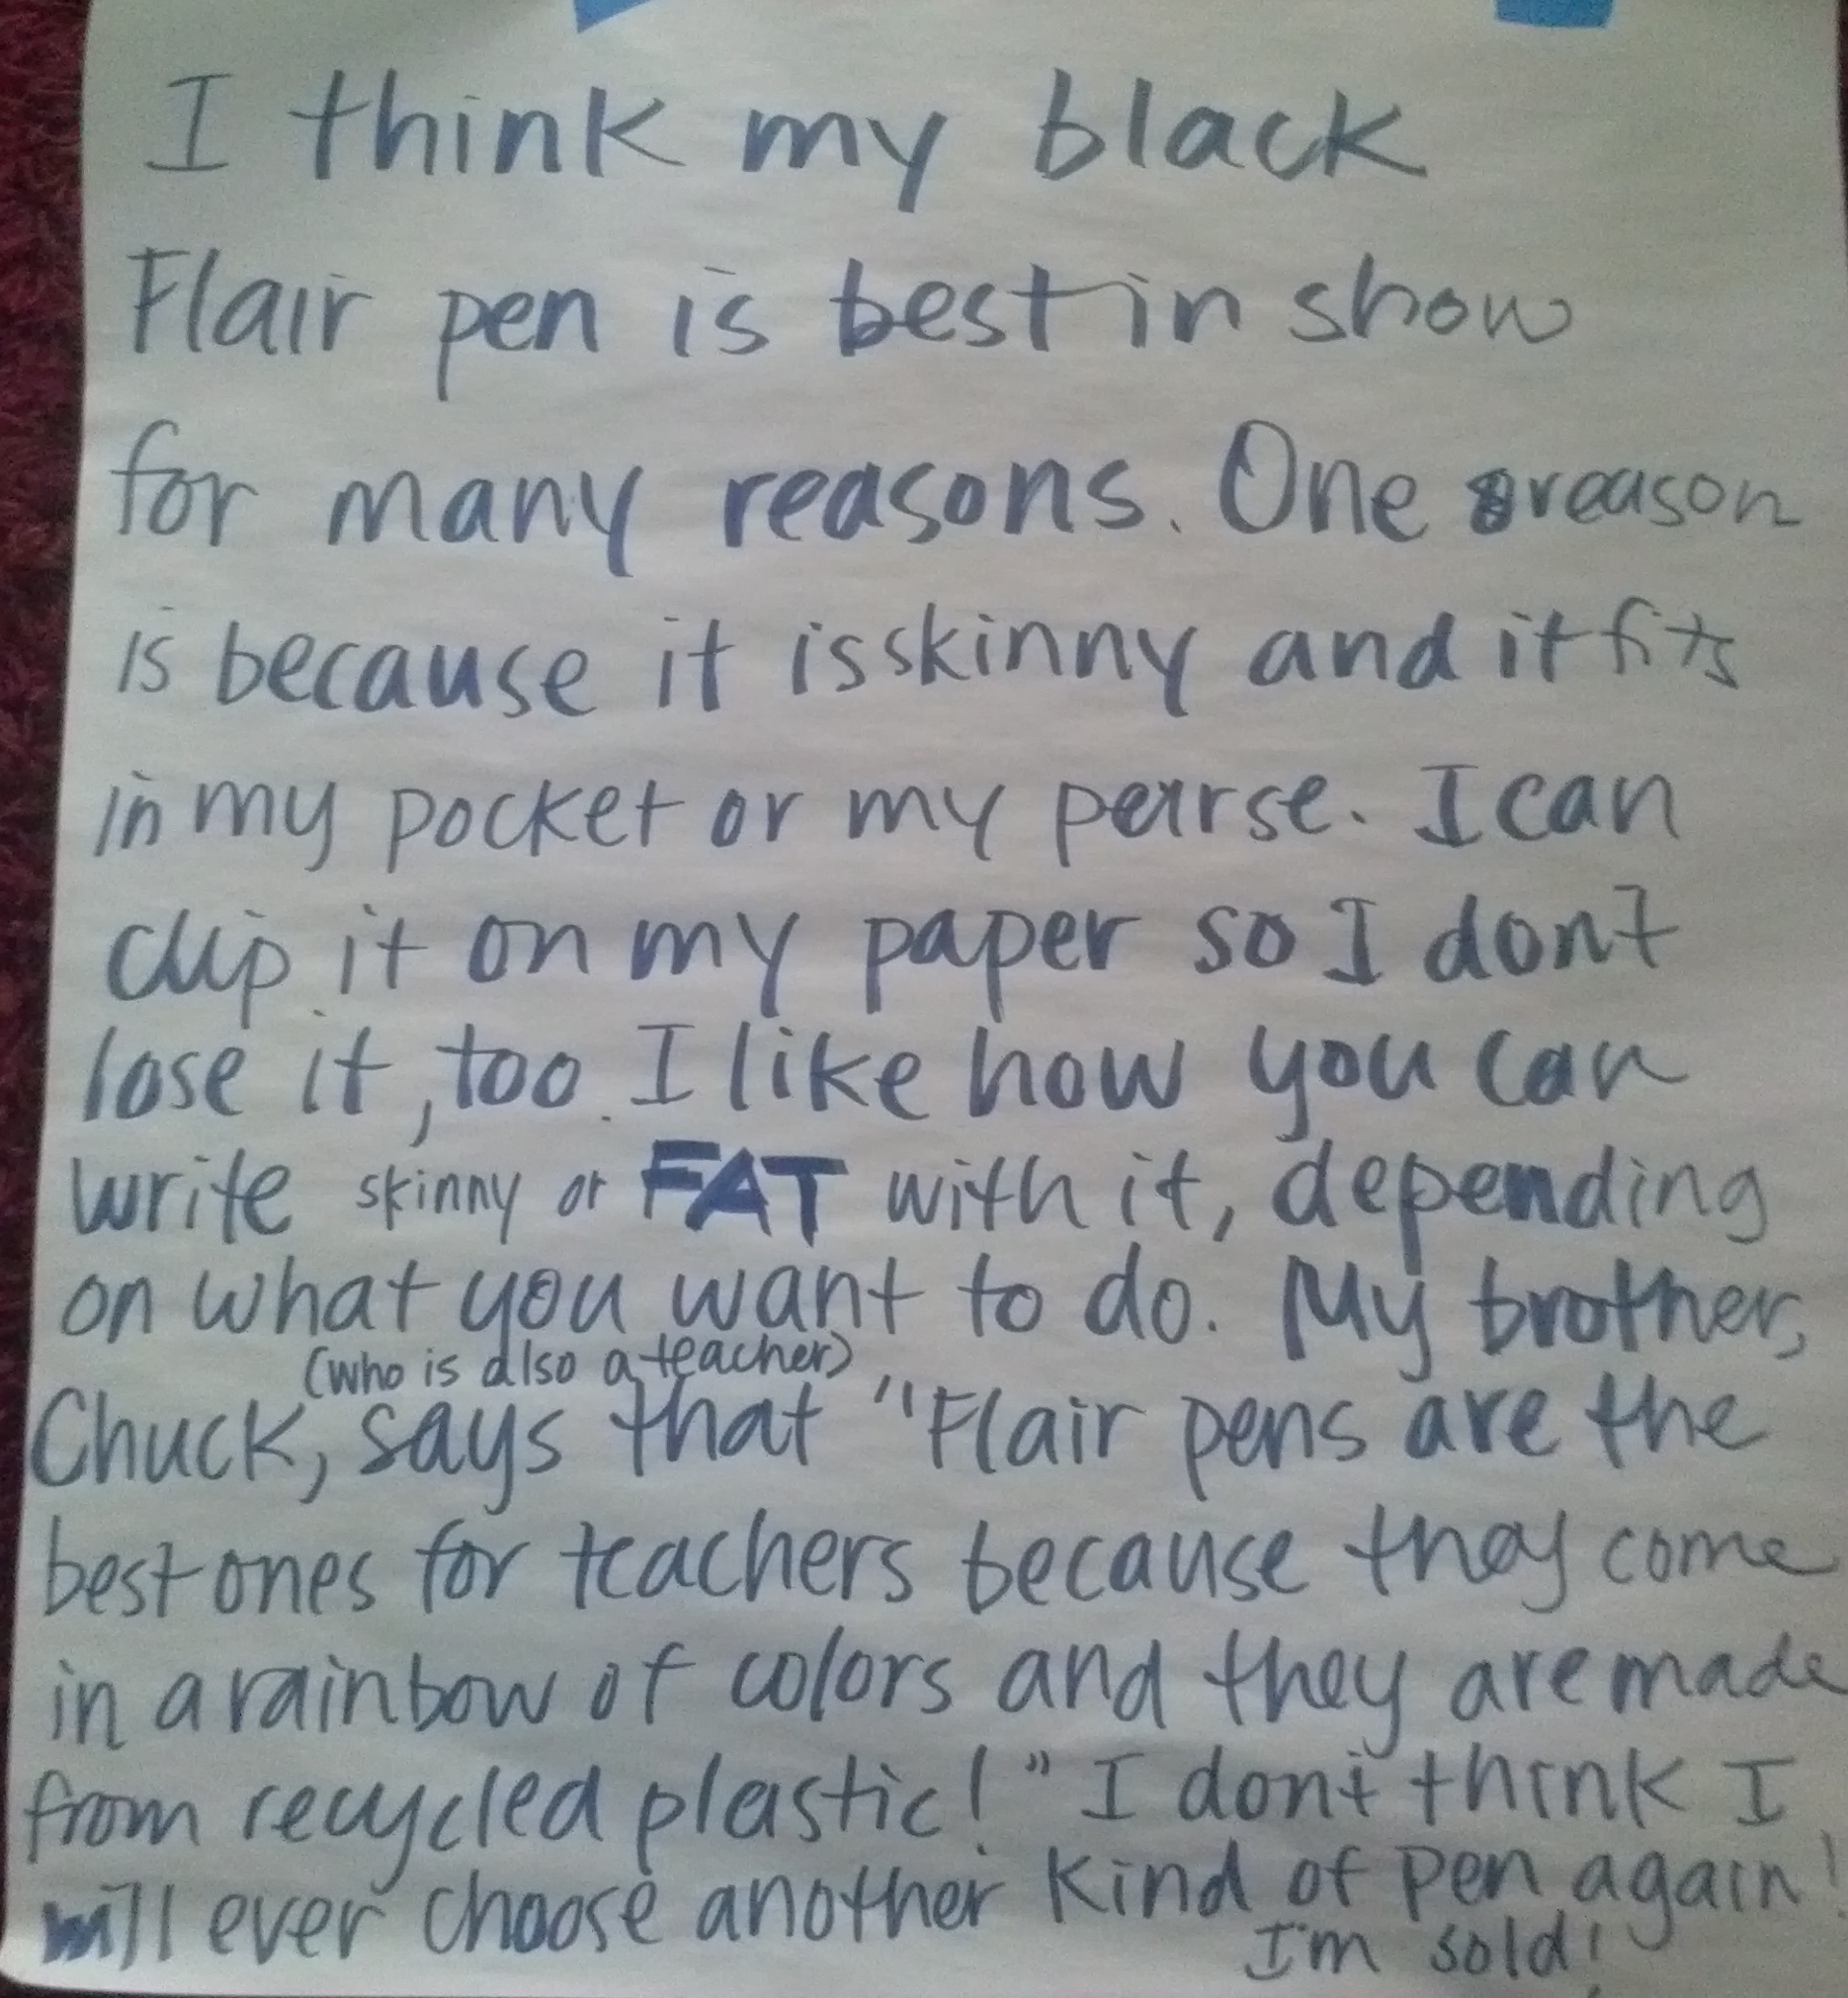 I think my black
Flair pen is best in show
for many reasons. One reason
is because it is skinny and it fits
in my pocket or my purse. I can
clip it on my paper so I don't
lose it, too. I like how you can
write skinny or FAT with it, depending
on what you want to do. My brother,
(who is also a teacher)
Chuck, says that "Flair pens are the
best ones for teachers because they come
in a rainbow of colors and they are made
from recycled plastic!" I don't think I
will ever choose another kind of pen again!
I'm sold!